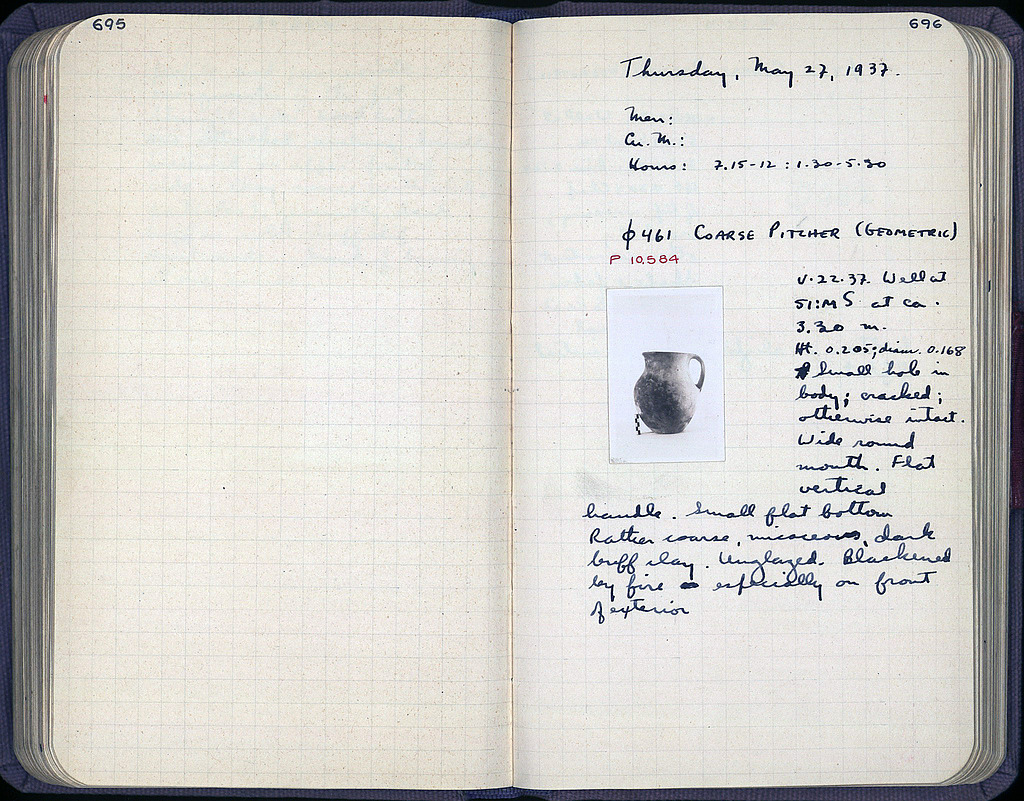 695
696
Thursday, May 27, 1937.
Men:
Cu. M.:
Hours: 7.15-12 : 1.30-5.30
ϕ 461 COARSE PITCHER (GEOMETRIC)
P 10584
V.22.37. Well at
51:ΜS at ca.
3.30 m.
Ht. 0.205; diam. 0.168
Small hole in
body; cracked;
otherwise intact.
Wide round
mouth. Flat
vertical
handle. Small flat bottom
Rather coarse, micaceous, dark
buff clay. Unglazed. Blackened
by fire especially on front
of exterior